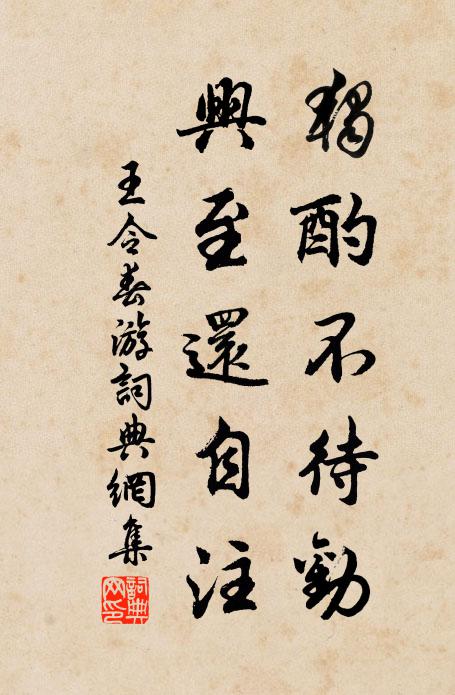 獨酌不待勸
興至還自注
王令春游詞典網集
詞典網印